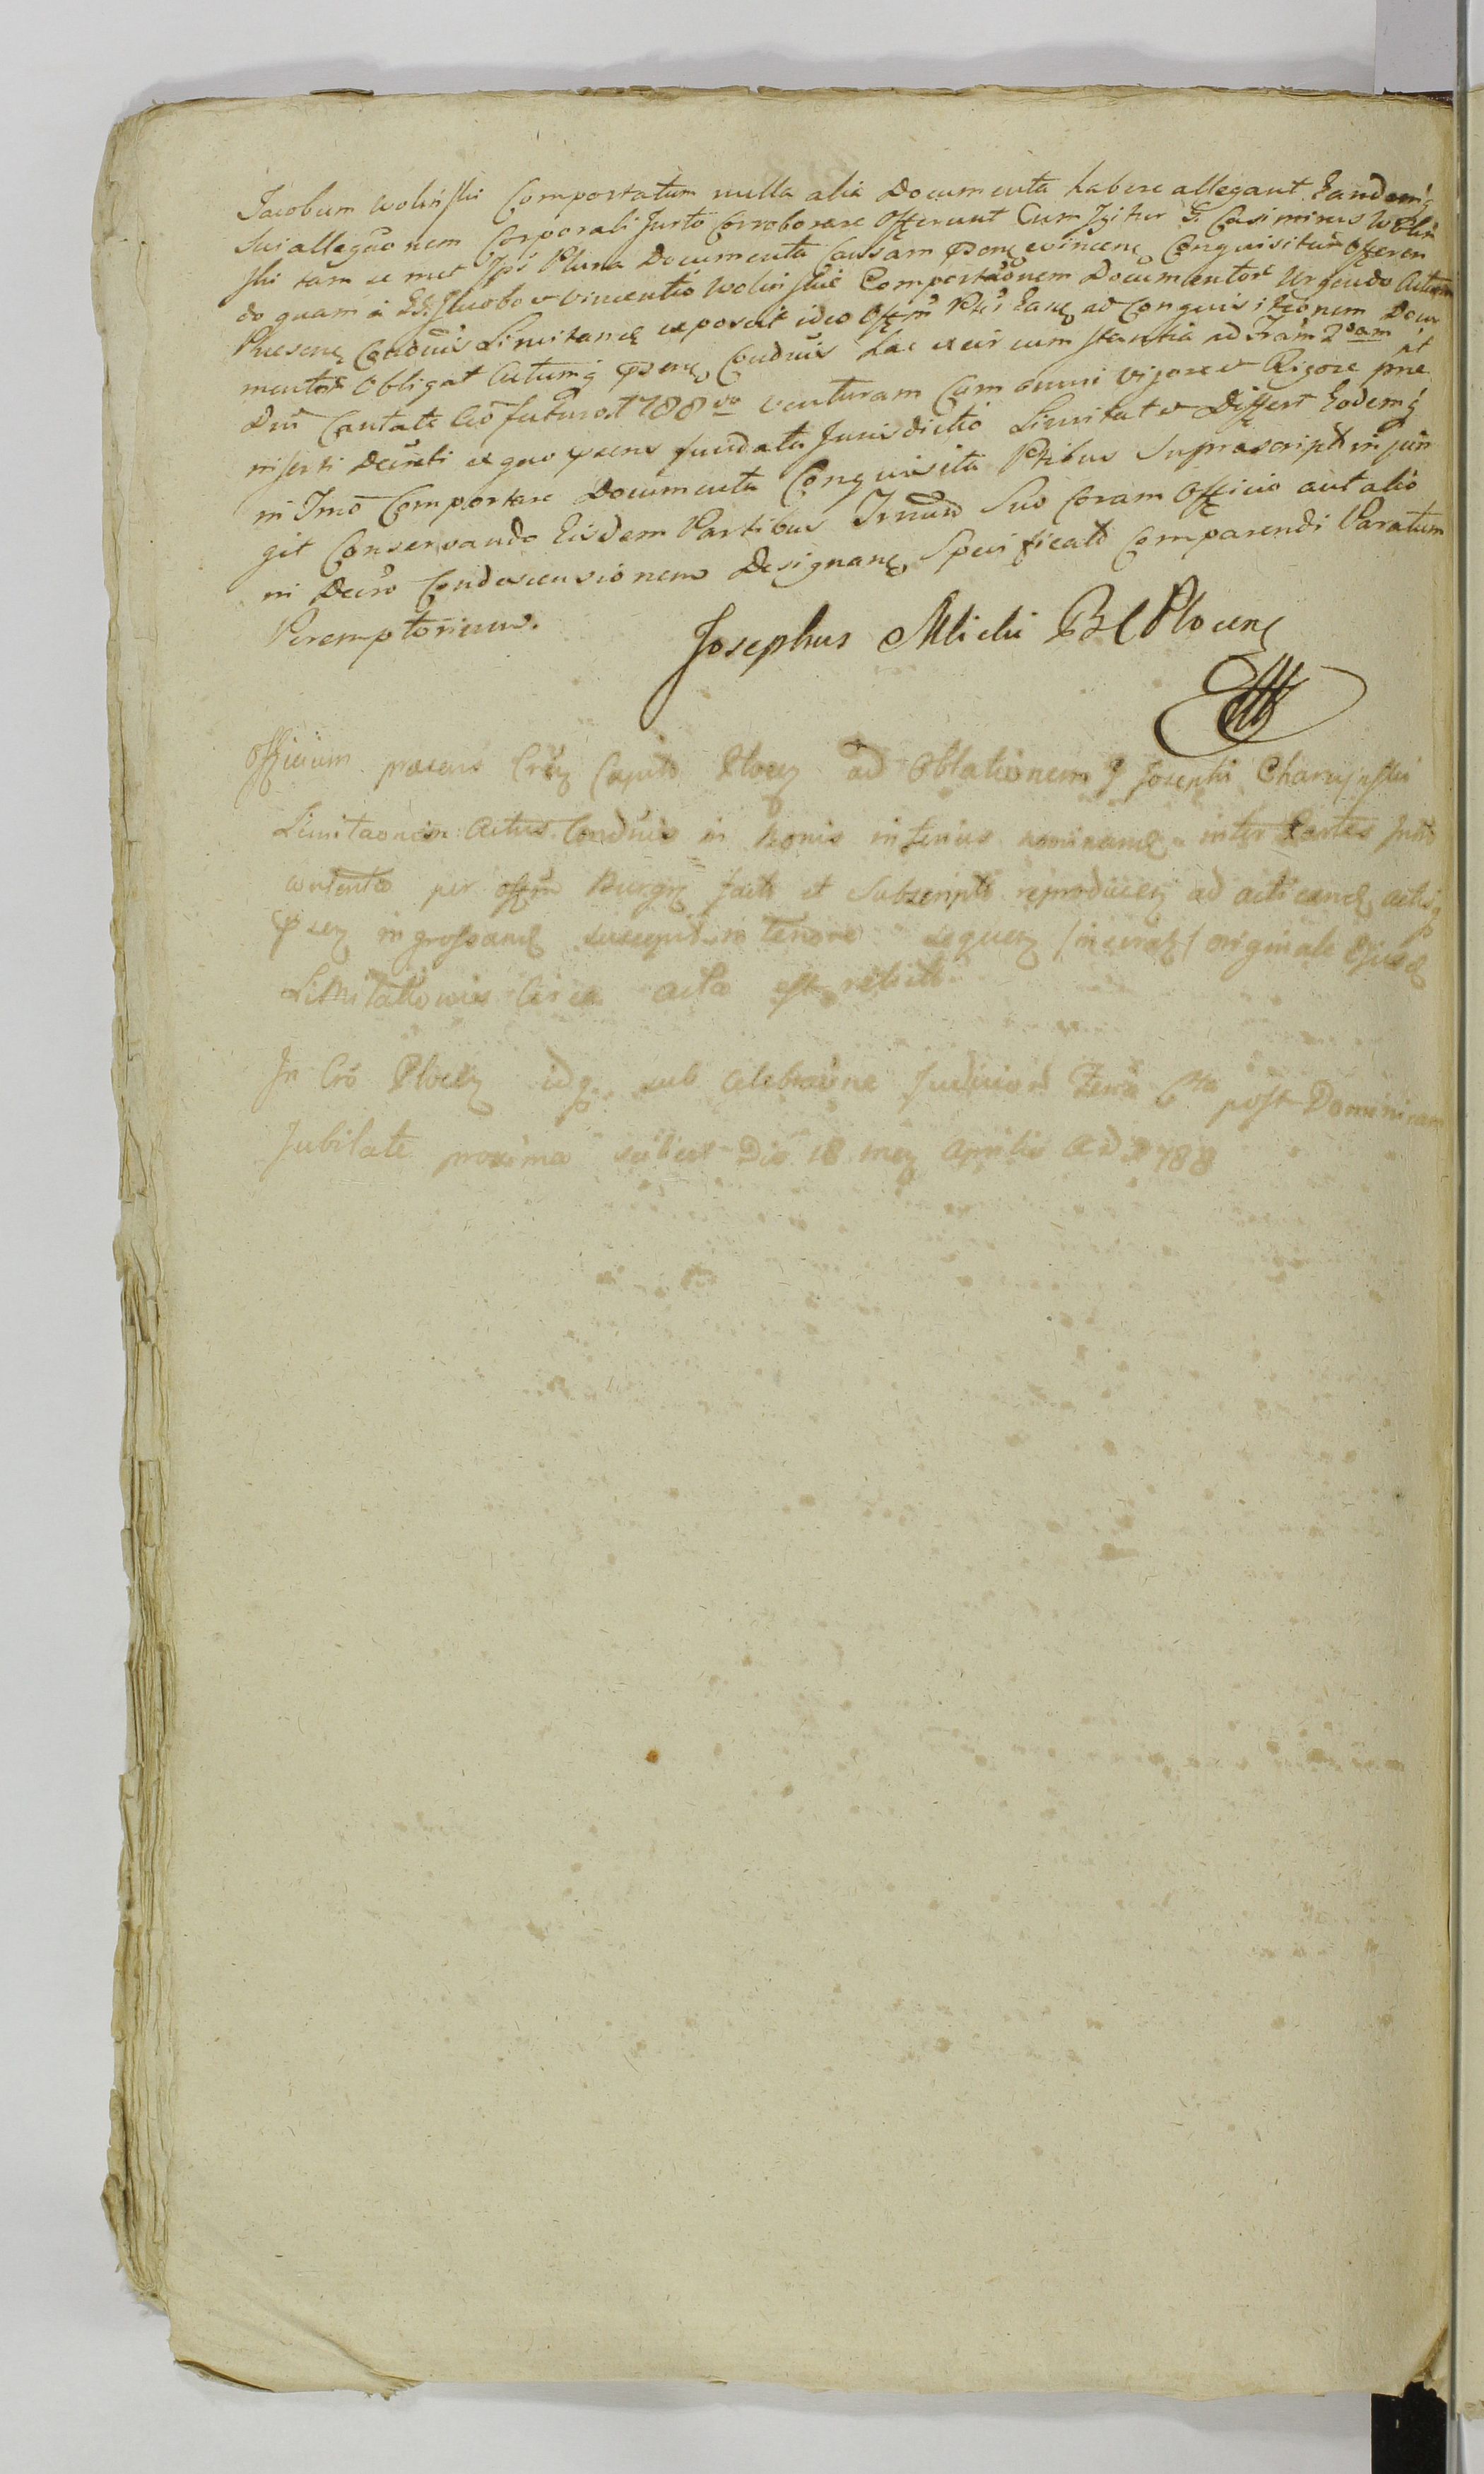 Jacobum Wolinski Comportatum nulla alia Documenta habere allegant Eandemq
Sui allegaõnem Corporali Jurto Corroborare Offerunt Cum Igitur G. Casimirus Wolin
ski tam se met Ipś Plura Documenta Causam pseng evinceng Conquisitur Offeren
do quam a GG. Jacobo et Vincentio Wolinskie Comportaõnem Documentor Urgendo Actum
Praeseng Conduis Limitand exposcit ideo Offm Ptes Easq ad Conquisitionem Docu
mentor Obligat Actumq pseng Conduis hac
Dni Cantate Aõ futuro 1788vo venturam Cum omni vigore et Rigore prae
inserti Decreti ex quo psens fundata Jurisdictio Limitat et Differt Eodemq
in Tmo Comportare Documenta Conquisita Ptibus Suprascript injun
git Conservando Eisdem Partibus Trmum Suo Coram Officio aut alio
in Decro Condescensionem Designang Specificato Comparendi Paratum
Peremptorium.
Josephus Mlicki B C Ploceng
Officium praesens Capit Plocz ad Oblationem G Josephi Charzynski
Limitaonem Actus Conduis in Bonis inferius nominand inter Partes Intro
contentas per offm Burgr facti et Subscripti reproducez ad acticand actisq
psez ingrossand suscepit in tenore sequez originale Ejusd
Limitationis Circa acta est
In Cro Plocez idq sub celebraõne Judicior Feria 6ta post Dominicam
Jubilate proxima scilicet Die 18 mez Aprilis AD 1788